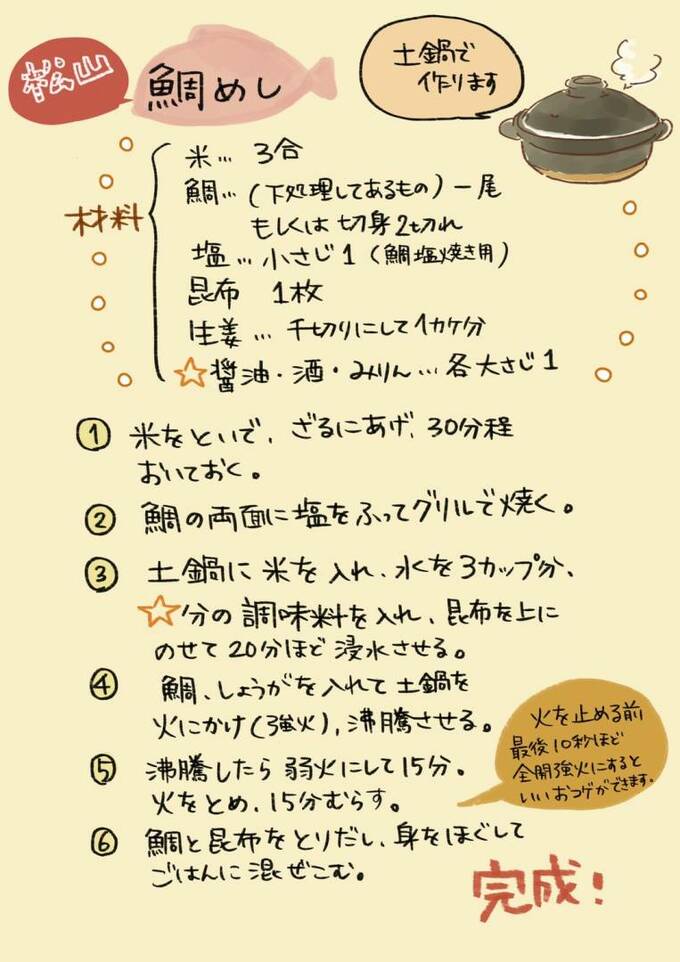 松山
鯛めし
土鍋で
作ります
材料
米… 3合
鯛…(下処理してあるもの)一尾
もしくは 切身2切れ
塩… 小さじ1(鯛塩焼き用)
昆布 1枚
生姜… 千切りにして1カケ分
☆醤油・酒・みりん… 各大さじ1
① 米をといで、ざるにあげ、30分程
おいておく。
② 鯛の両面に塩をふってグリルで焼く。
③ 土鍋に米を入れ、水を3カップ分、
☆分の調味料を入れ、昆布を上に
のせて20分ほど浸水させる。
④ 鯛、しょうがを入れて土鍋を
火にかけ(強火)、沸騰させる。
⑤ 沸騰したら弱火にして15分。
火をとめ、15分むらす。
火を止める前
最後10秒ほど
全開強火にすると
いいおコゲができます。
⑥ 鯛と昆布をとりだし、身をほぐして
ごはんに混ぜこむ。
完成!